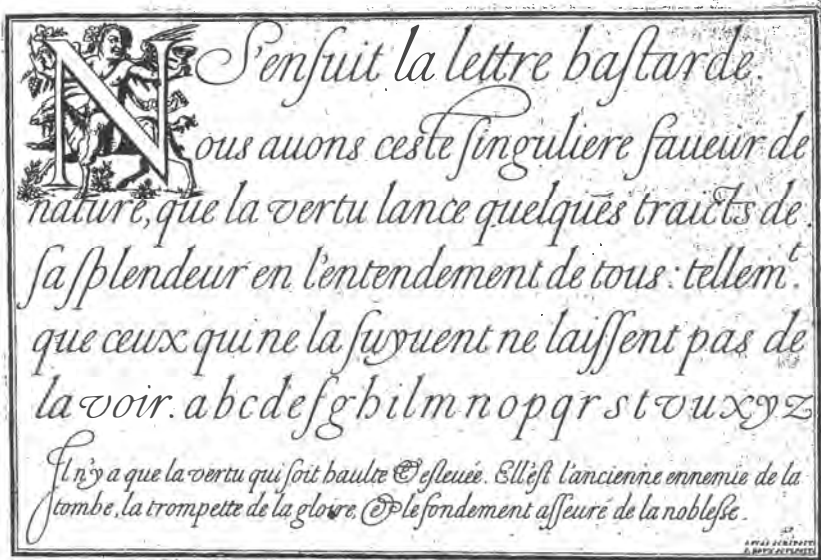 S'enſuit la lettre baſtarde.
Nous auons ceste ſinguliere faueur de
nature, que la vertu lance quelques traicts de
ſa ſplendeur en l'entendement de tous : tellemᵗ.
que ceux qui ne la ſuyuent ne laiſſent pas de
la voir. a b c d e f g h i l m n o p q r s t v u x y z
Il n'y a que la vertu qui ſoit haulte & eſleuée. Ell'eſt l'ancienne ennemie de la
tombe, la trompette de la gloire, & le fondement aſſeuré de la nobleſſe.